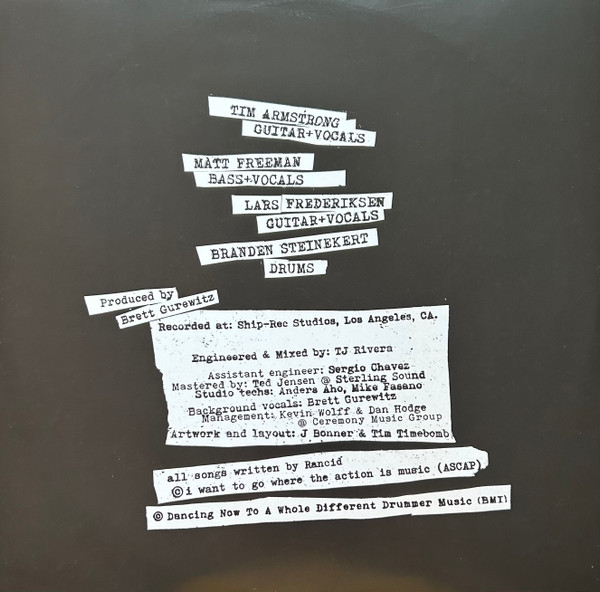 TIM ARMSTRONG
GUITAR+VOCALS
MATT FREEMAN
BASS+VOCALS
LARS FREDERIKSEN
GUITAR+VOCALS
BRANDEN STEINEKERT
DRUMS
Produced by
Brett Gurewitz
Recorded at: Ship-Rec Studios, Los Angeles, CA.
Engineered & Mixed by: TJ Rivera
Assistant engineer: Sergio Chavez
Mastered by: Ted Jensen @ Sterling Sound
Studio techs: Anders Aho, Mike Fasano
Background vocals: Brett Gurewitz
Management: Kevin Wolff & Dan Hodge
@ Ceremony Music Group
Artwork and layout: J Bonner & Tim Timebomb
all songs written by Rancid
© i want to go where the action is music (ASCAP)
© Dancing Now To A Whole Different Drummer Music (BMI)